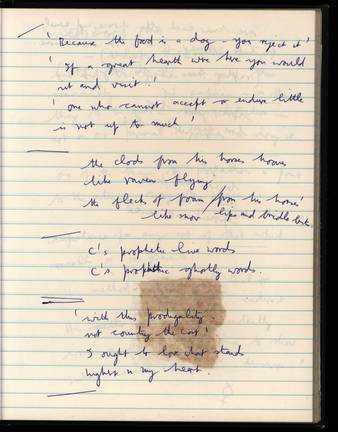 ' Because the food is a dog - you reject it '
' If a great hearth were here you would
sit and visit '
' one who cannot accept or endure little
is not up to much '
the clods from his horses hooves
like ravens flying
the flecks of foam from his horses'
like snow lips and bridle bit.
C's prophetic live words
C's prophetic ghostly words.
' with this prodigality
not counting the cost '
I ought to love that stands
highest in my heart